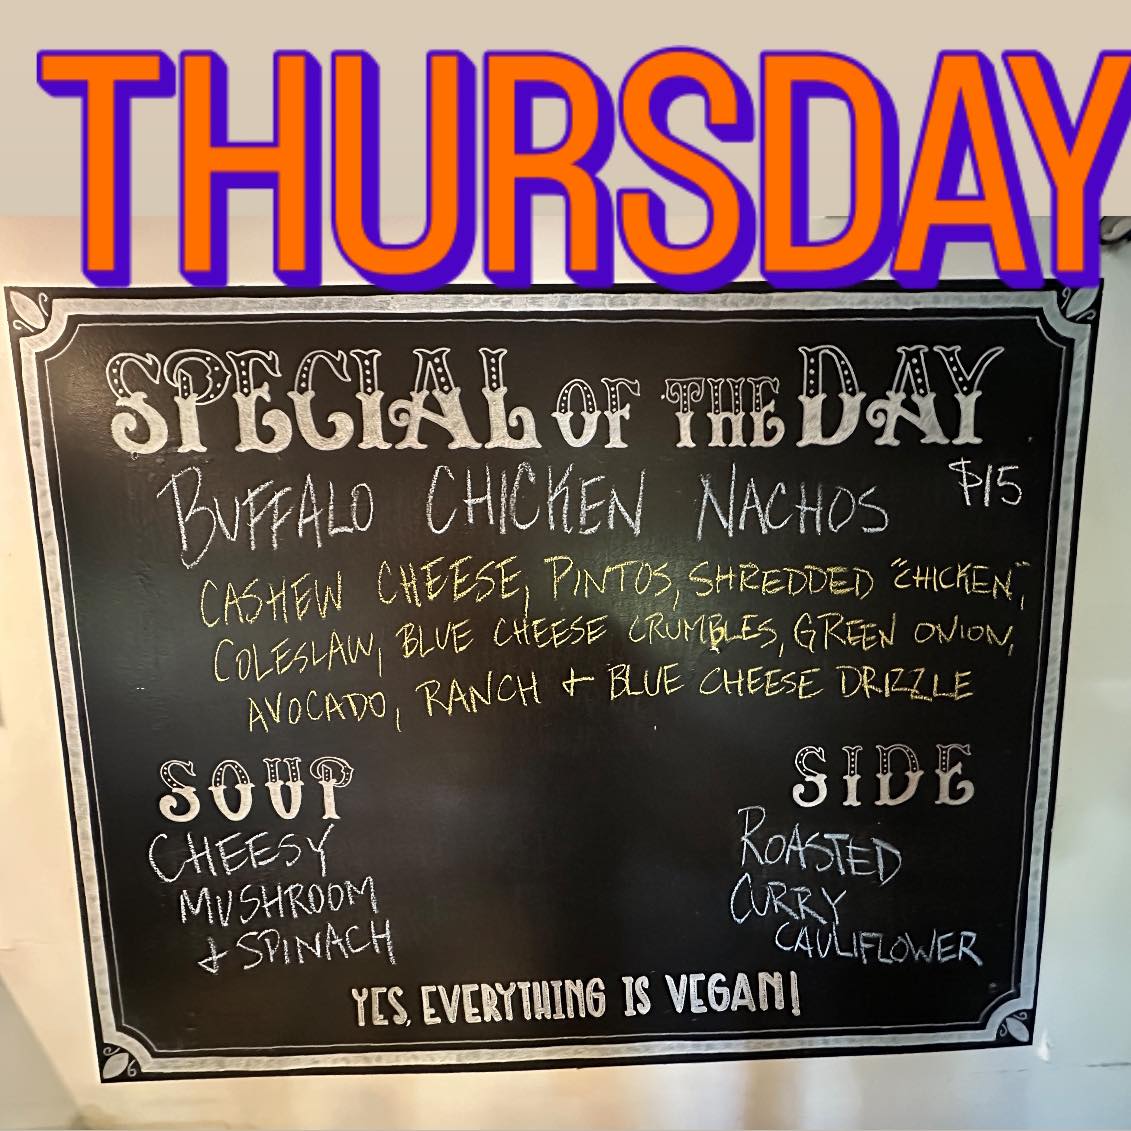 THURSDAY
SPECIAL OF THE DAY
BUFFALO CHICKEN NACHOS $15
CASHEW CHEESE, PINTOS, SHREDDED "CHICKEN",
COLESLAW, BLUE CHEESE CRUMBLES, GREEN ONION,
AVOCADO, RANCH + BLUE CHEESE DRIZZLE
SOUP
CHEESY
MUSHROOM
+ SPINACH
SIDE
ROASTED
CURRY
CAULIFLOWER
YES, EVERYTHING IS VEGAN!